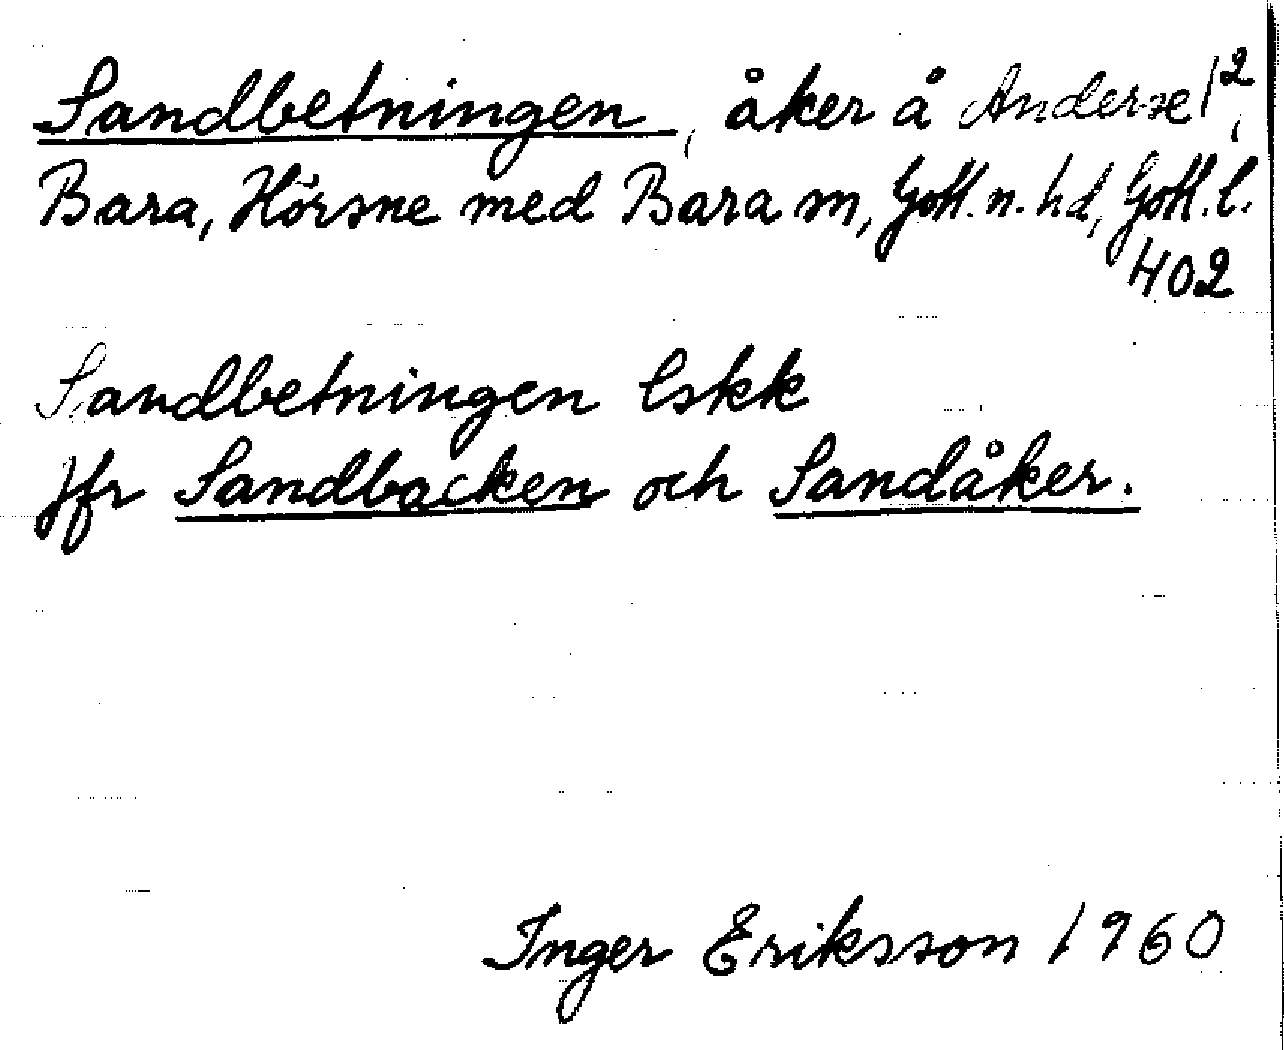 Sandbetningen, åker å Anderse 1²,
Bara, Hörsne med Bara sn, Gotl. n. hd, Gotl. l.
402
Sandbetningen Eskk
Jfr Sandbacken och Sandåker.
Inger Eriksson 1960